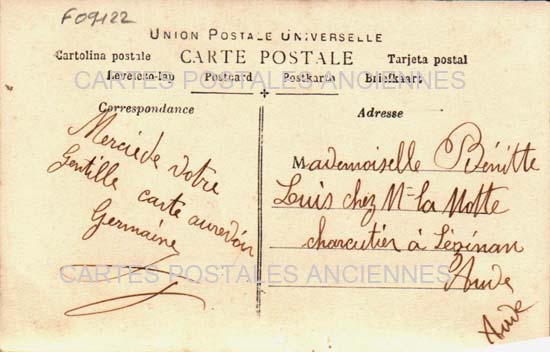 F09122
UNION POSTALE UNIVERSELLE
Cartolina postale CARTE POSTALE Tarjeta postal
Levelezo-lap Postcard Postkarte Briefkaart
CARTES POSTALES ANCIENNES
Correspondance
Adresse
Merci de votre
Gentille carte aurevoir
Germaine
Mademoiselle Bénitte
Louis chez Mr la Motte
charcutier à Lézinan
Aude
Aude
CARTES POSTALES ANCIENNES